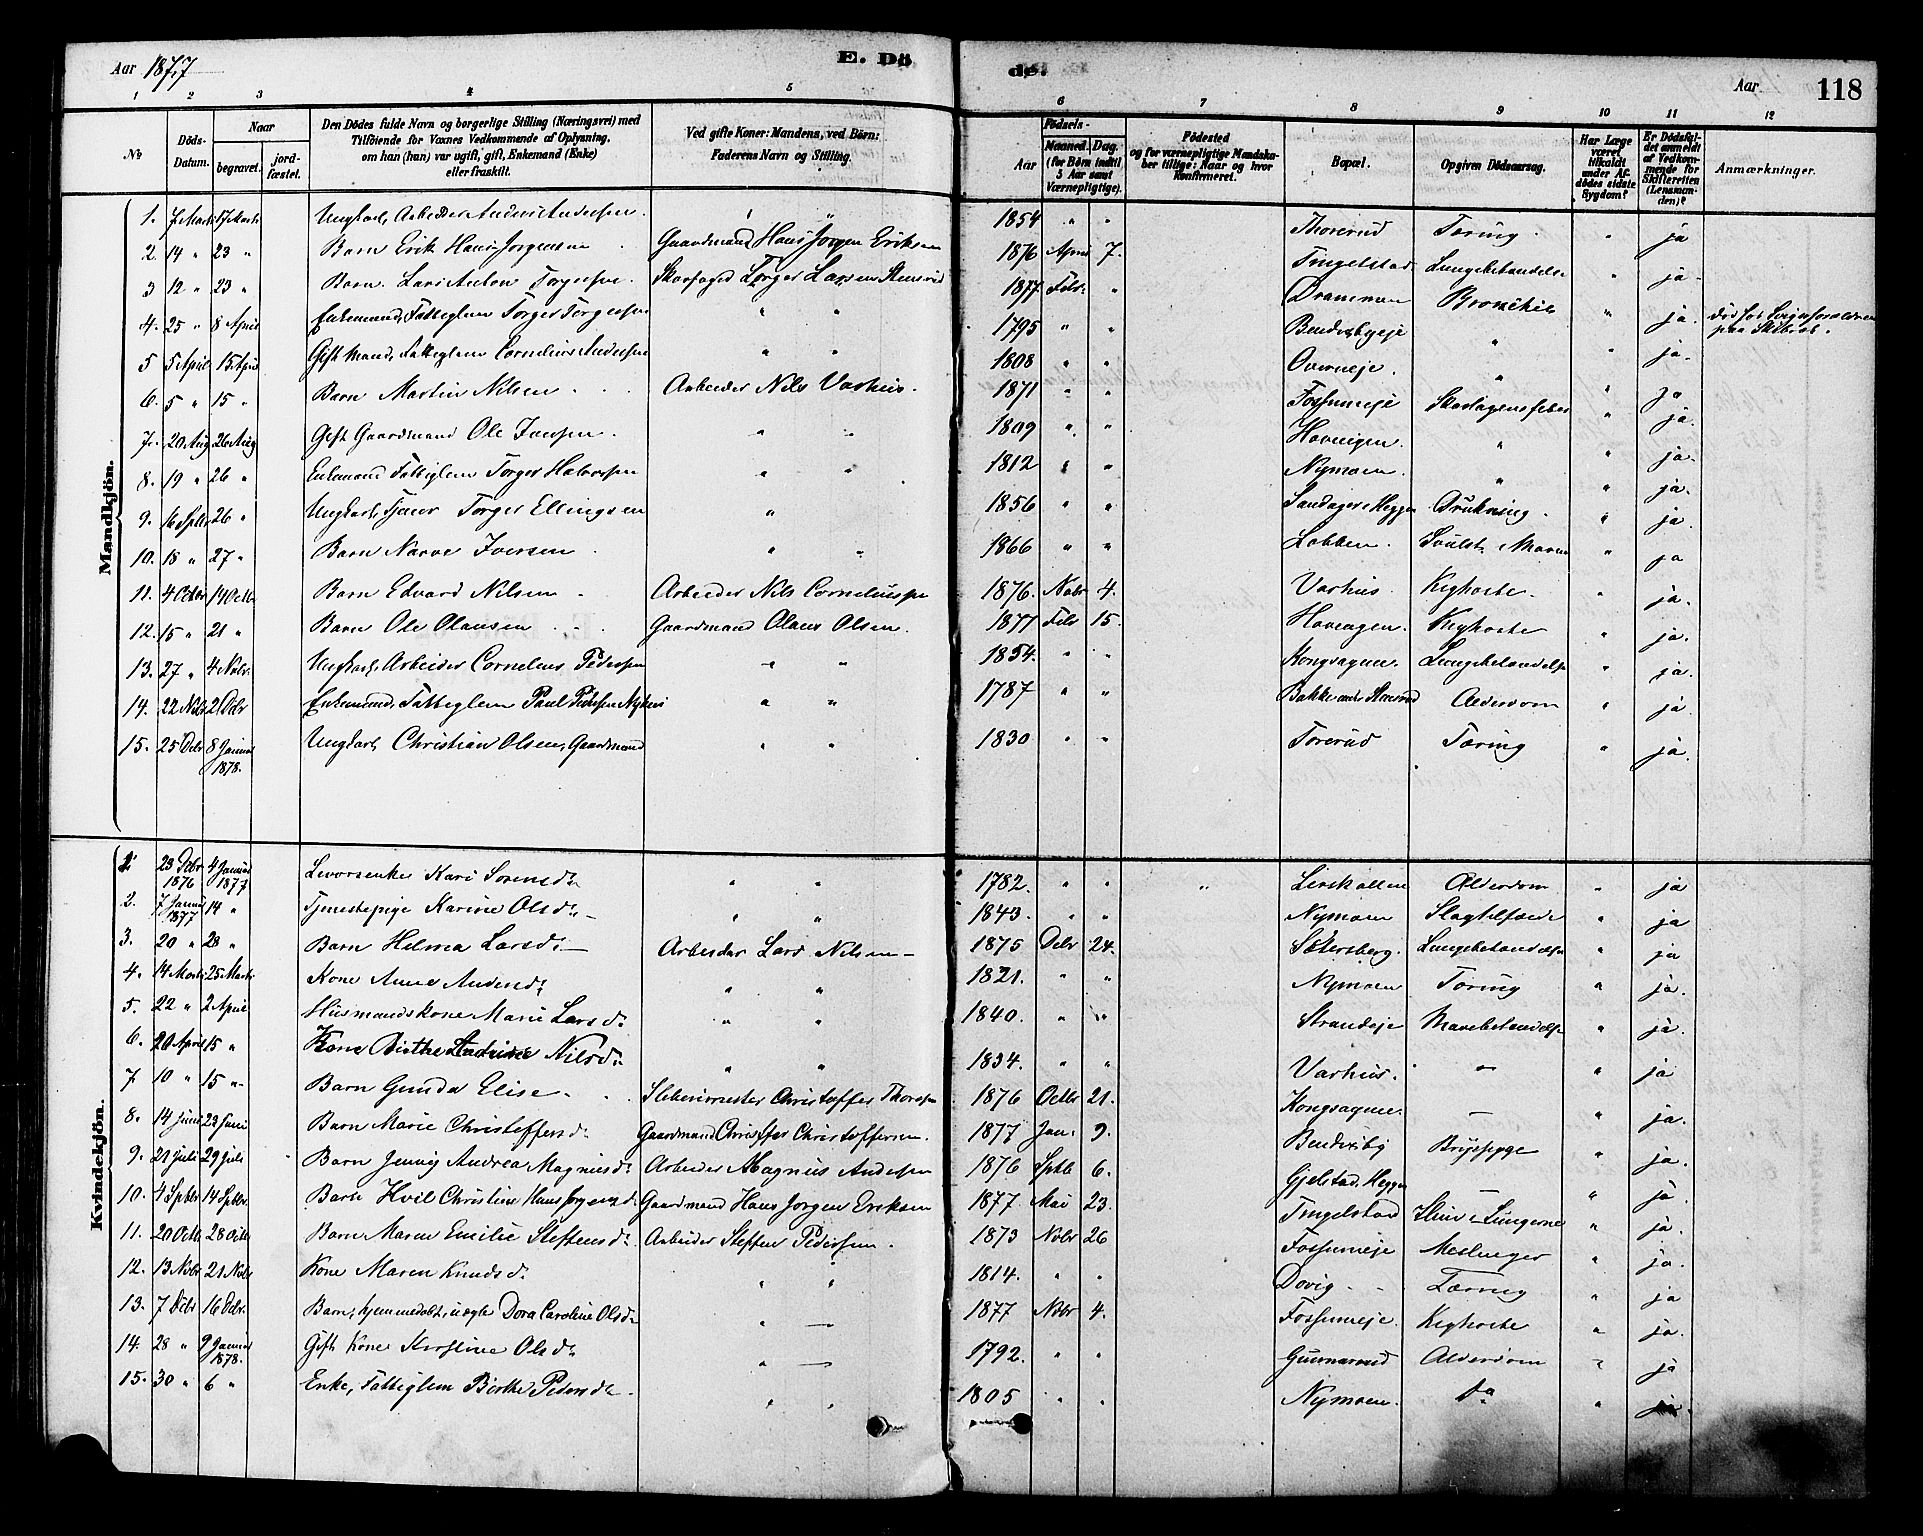 Aar 1877
E. Dö
de.
Aar
118
1 2 3 4 5 6 7 8 9 10 11 12
No
Döds-Datum.
Naar
begravet.
jord-fæstet.
Den Dödes fulde Navn og borgerlige Stilling (Næringsvei) med
Tilföiende for Voxnes Vedkommende af Oplysning,
om han (hun) var ugift, gift, Enkemand (Enke)
eller fraskilt.
Ved gifte Koner: Mandens, ved Börn:
Faderens Navn og Stilling.
Födsels-
Aar
Maaned. Dag.
(for Börn indtil
5 Aar samt
Værnepligtige).
Födested
og for værnepligtige Mandska-
ber tillige: Naar og hvor
Konfirmeret.
Bopæl.
Opgiven Dödsaarsag.
Har Læge
været
tilkaldt
under Af-
dödes sidste
Sygdom?
Er Dödsfal-
det anmeldt
af Vedkom-
mende for
Skifteretten
(Lensman-
den)?
Anmærkninger.
Mandkjön.
1. 7 Marts 17 Marts Ungkarl, Arbeider Anders Andersen. " " 1854 " " Thorerud Tæring. " ja
2. 14 " 23 " Barn Erik Hans Jorgensen Gaardmand Hans Jorgen Eriksen 1876 April 7. Tingelstad Lungebetændelse " ja
3 12 " 23 " Barn Lars Anton Torgersen. Skovfoged Torger Larsen Stensrud 1877 Febr " Drammen Bronchit " ja.
4. 25 " 8 April Enkemand, Fattiglem Torger Torgersen " " 1795 " " Bendixbyeje " " ja.
5 5 April 15 April Gift Mand, Fattiglem Cornelius Andersen " " 1808 " " Overneje. " " ja
6. 5 " 15 " Barn Martin Nilsen Arbeider Nils Varhus. 1871 " " Fossumeje Skarlagensfeber " ja
7. 20 Aug 26 Aug Gift Gaardmand Ole Iversen. " " 1809 " " Hovengen. " " ja.
8. 19 " 26 " Enkemand Fattiglem Torger Halvorsen " " 1812 " " Nymoen. " " ja.
9. 16 Sptbr 26 " Ungkarl, Tjener Torger Ellingsen " 1856 " " Sandager i Heggen Drukning. " ja.
10. 18 " 27 " Barn Narve Iversen " " 1866 " " Lobben. " ja
11. 4 Octbr 14 Octbr Barn Edvard Nilsen Arbeider Nils Corneliussen 1876. Nobr 4. Varhus. Kighoste. " ja.
12. 15 " 21 " Barn Ole Olausen Gaardmand Olaus Olsen. 1877 Febr 15. Hovengen. Kighoste " ja.
13. 27 " 4 Nobr. Ungkarl, Arbeider Cornelius Pedersen " " 1854. " " Kongsagnen. Lungebetændelse " ja.
14. 22 Nobr 2 Debr Enkemand, Fattiglem Paul Pedersen " " 1787 " " Bakke under Stensrud Alderdom " ja
15. 25 Debr 8 Januar 1878. Ungkarl Christian Olsen, Gaardmand " " 1830 " " Torerud Tæring " ja.
Kvindekjön.
1. 23 Debr 1876 4 Januar 1877 Kari Sorensd. " " 1782. " " " Lerskallen Alderdom " ja
2. 7 Januar 1877 14 " Tjenestepige Karine Olsd. " " 1843. " " Nymoen Slagtilfælde " ja
3. 20 " 28 " Barn Helma Larsd. Arbeider Lars Nilsen 1875 Debr 24. Sætersberg. Lungebetændelse " ja
4. 14 Marts 25 Marts Kone Anne Andersd. " " 1821. " " Nymoen Tæring " ja.
5. 22 " 2 April Husmandskone Marie Larsd. " " 1840. " " Strandeje Mavebetændelse " ja.
6. 20 April 15 " Kone Birthe Andrine Nilsd. " " 1834. " " Varhus. " " ja
7. 10 " 15 " Barn Gunda Elise. Christoffer Thorsen 1876 Octbr 21. Kongsagnen. — " ja.
8. 14 Juni 23 Juni Barn Marie Christoffersd. Gaardmand Christoffer Christoffersen. 1877 Jan. 9. Bendixby Brystsyge " ja.
9. 21 Juli 29 Juli Barn Jenny Andrea Magnusd. Arbeider Magnus Andersen 1876 Sptb 6. Gjelstad, Heggen — " ja
10. 4 Sptbr 14 Sptbr. Barn Christine Hans Jorgensd. Gaardmand Hans Jorgen Eriksen 1877 Mai 23. Tingelstad Slim i Lungerne " ja.
11. 20 Octbr 28 Octbr Barn Maren Emilie Steffensd. Arbeider Steffen Pedersen. 1873 Nobr 26 Fossumeje Meslinger " ja.
12. 13 Nobr 21 Nobr Kone Maren Knudsd. " " 1814. " " Dovig Tæring " ja
13. 7 Debr 16 Debr. Barn, hjemmedøbt, uægte Dora Caroline Olsd. " — 1877 Nobr 4. Fossumeje. Kighoste " ja.
14. 28 " 9 Januar 1878. Gift Kone Kirstine Olsd. " — 1792. " " Gunnarsrud Alderdom " ja
15. 30 " 6 " Enke, Fattiglem Berthe Pedersd. " " 1805 " " Nymoen. do " ja.